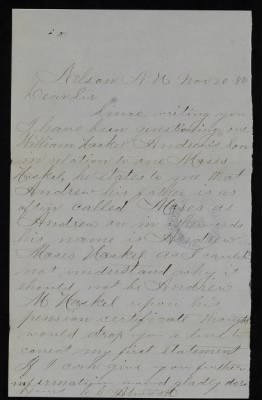 Nelson N.H. Nov 20 80
Dear Sir
Since writing you
I have been questioning one
William Haskel Andrew's Son
in relation to one Moses
Haskel, he states to me that
Andrew his father is as
often called Moses as
Andrew or in other words
his name is Andrew
Moses Haskel, as I could
not understand why it
should not be Andrew
M Haskel upon his
pension certificate thought
would drop you a line to
correct my first statement
If I can give you further
information would gladly do so